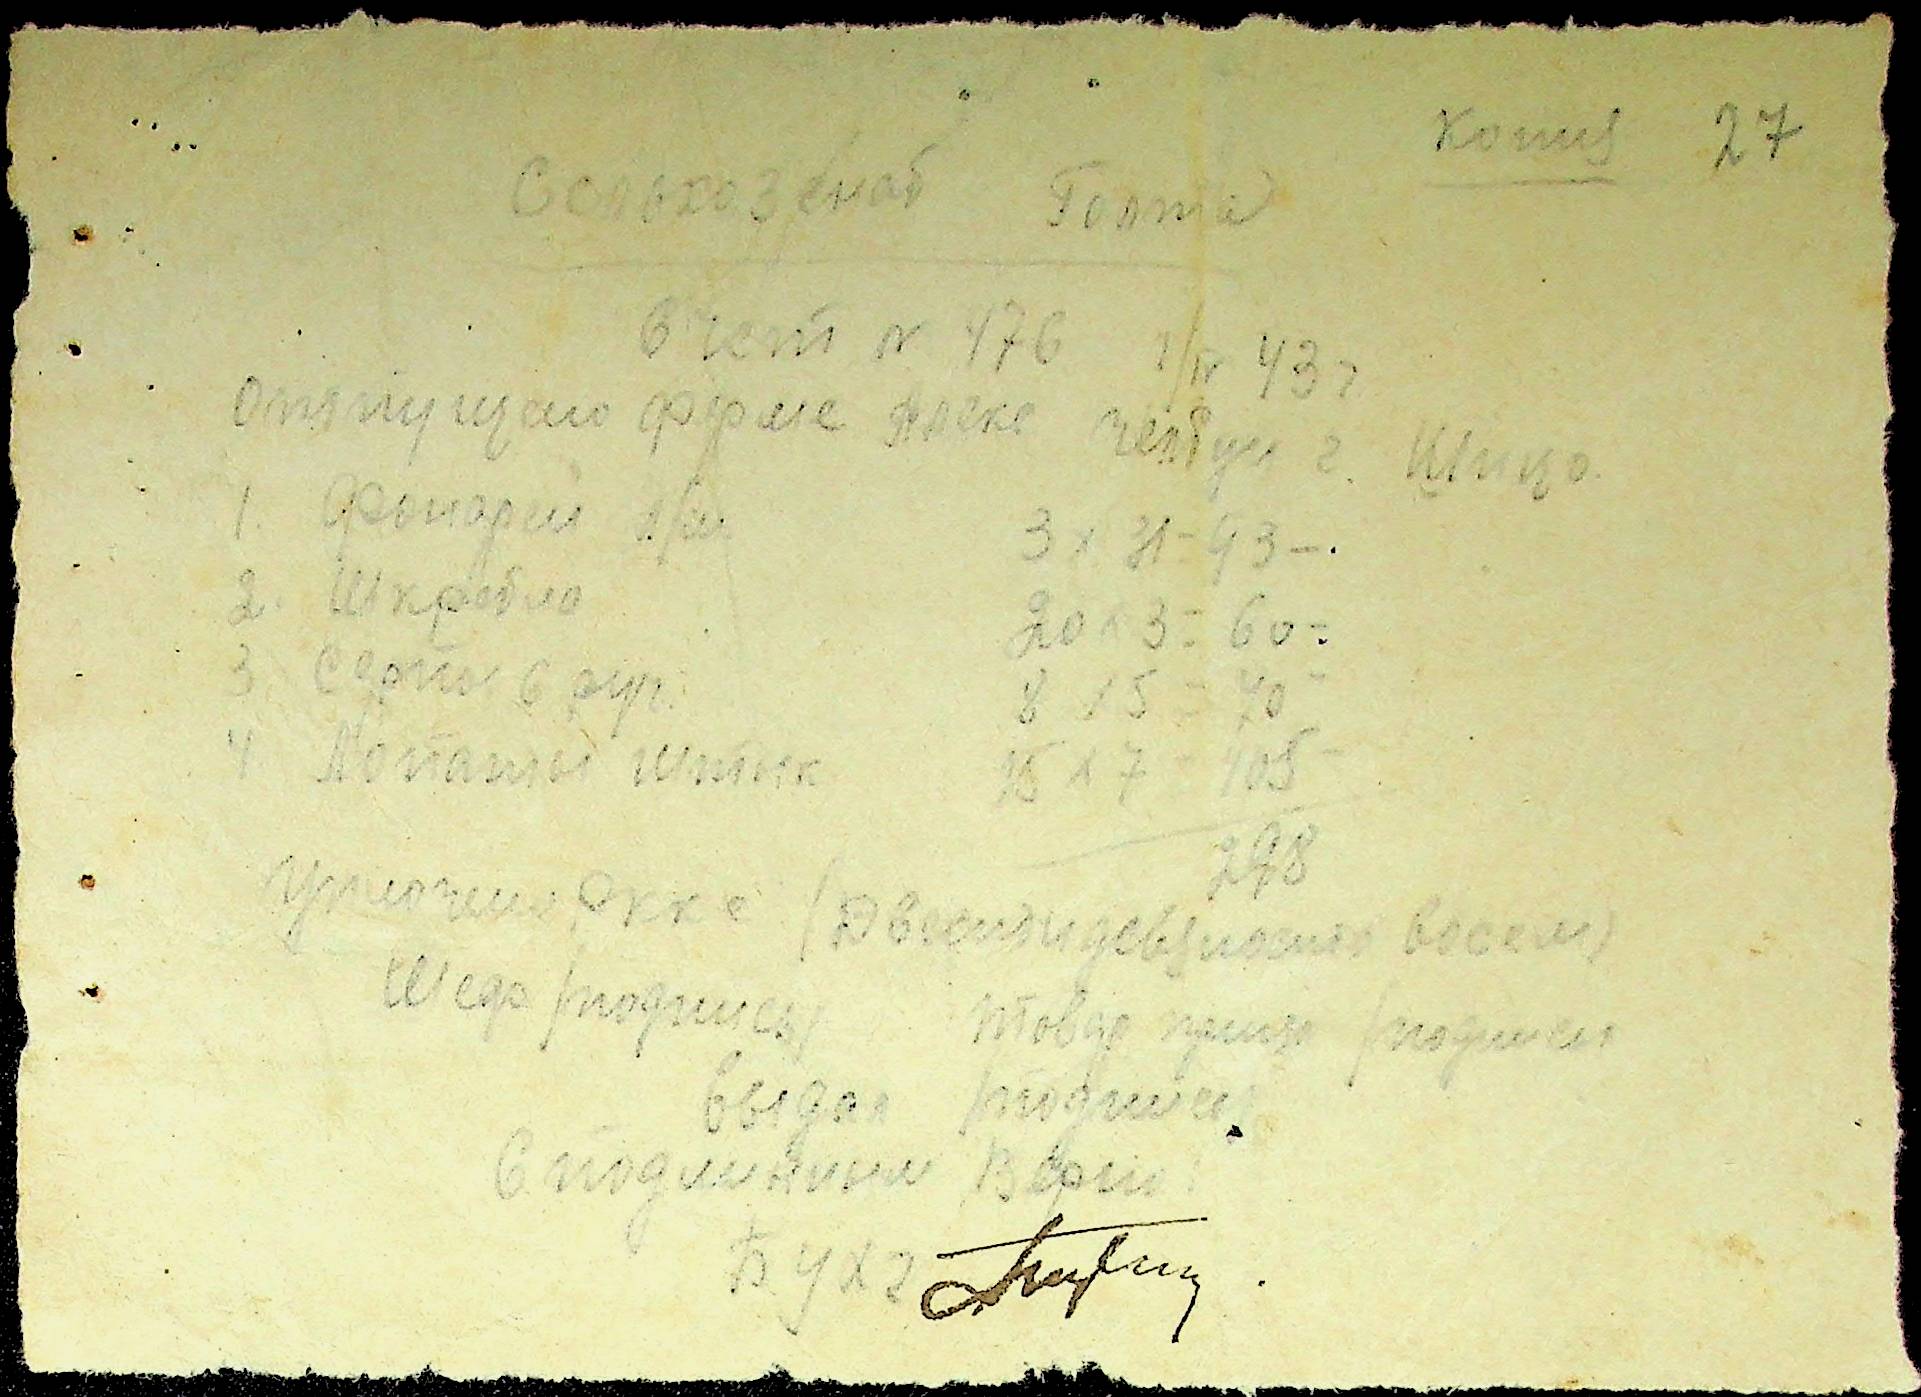 Копия 27
Сельхозснаб Голта
Счет № 476 1/IV 43 г
Отпущено ферме
1. Фонарей л/м 3 x 31 = 93 –
2. Шкребло 20 x 3 = 60 =
3. Серпы с руч. 8 x 5 = 40 =
4. Лопаты штык 15 x 7 = 105 –
298
(Двестидевяносто восем)
Шеф /подпись/ Товар принял /подпись
Выдал /подпись/
С подлинным Верно:
Бухг